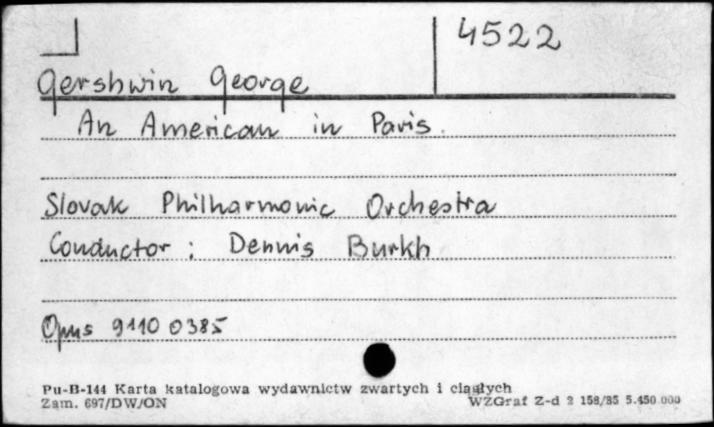 4522
Gershwin George
An American in Paris.
Slovak Philharmonic Orchestra
Conductor: Dennis Burkh
Opus 9110 0385
Pu-B-144 Karta katalogowa wydawnictw zwartych i ciągłych
Zam. 697/DW/ON WZGraf Z-d 2 158/85 5.450.000